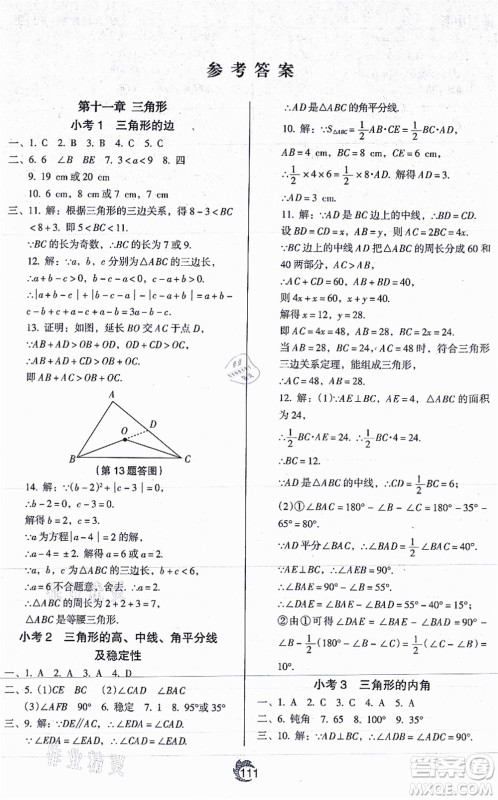 参考答案
第十一章 三角形
小考1 三角形的边
一、1. C 2. A 3. B 4. C 5. C
二、6. 6 ∠B BE 7. 3<a<9 8. 四
9. 19 cm 或 20 cm
10. 6 cm 或 8 cm 或 7 cm
三、11. 解：根据三角形的三边关系，得 8-3<BC
<8+3. 即 5<BC<11.
∵BC的长为奇数，∴BC的长为7或9.
12. 解：∵a，b，c分别为△ABC的三边长，
∴a+b-c>0，b-c-a<0，c-a-b<0.
∴|a+b-c|+|b-c-a|+|c-a-b|=a+b-
c-b+c+a-c+a+b=3a+b-c.
13. 证明：如图，延长BO交AC于点D.
∵AB+AD>OB+OD，OD+CD>OC，
∴AB+AD+OD+CD>OB+OD+OC.
即AB+AC>OB+OC.
A
D
O
B
C
(第13题答图)
14. 解：∵(b-2)²+|c-3|=0，
∴b-2=0，c-3=0.
解得b=2，c=3.
∵a为方程|a-4|=2的解，
∴a-4=±2. 解得a=6或2.
∵a，b，c为△ABC的三边长，b+c<6，
∴a=6不合题意，舍去. ∴a=2.
∴△ABC的周长为2+2+3=7，
△ABC是等腰三角形.
小考2 三角形的高、中线、角平分线
及稳定性
一、1. B 2. C 3. C 4. C
二、5. (1)CE BC (2)∠CAD ∠BAC
(3)∠AFB 90° 6. 稳定 7. 1 8. 45°
三、9. 解：∵DE∥AC，∴∠EDA=∠CAD.
∵∠EDA=∠EAD，∴∠EAD=∠CAD.
∴AD是△ABC的角平分线.
10. 解：∵S△ABC=1/2AB·CE=1/2BC·AD，
AB=4 cm，BC=8 cm，CE=6 cm，
∴1/2×4×6=1/2×8·AD. 解得AD=
3 cm.
11. 解：∵AD是BC边上的中线，∴BD=CD.
设BD=CD=x，则BC=2x.
∵AC=2BC，∴AC=4x.
∵BC边上的中线AD把△ABC的周长分成60
和40两部分，AC>AB，
∴AC+CD=60，AB+BD=40.
则4x+x=60，x+y=40.
解得x=12，y=28.
即AC=4x=48，AB=28.
当AC=48，AB=28，BC=24时，符合三角形
三边关系定理，能组成三角形.
∴AC=48，AB=28.
12. 解：(1)∵AE⊥BC，AE=4，△ABC的面积
为24，
∴1/2BC·AE=24. ∴1/2BC×4=24.
∴BC=12.
∵AD是△ABC的中线，∴CD=1/2BC=6.
(2)①∠BAC=180°-∠B-∠C=180°-35°-
65°=80°.
∵AD平分∠BAC，∴∠BAD=1/2∠BAC=40°.
∵AE⊥BC，∴∠AEB=90°.
∴∠BAE=90°-∠B=90°-35°=55°.
∴∠DAE=∠BAE-∠BAD=55°-40°=15°.
②由①可得∠DAE=∠BAE-∠BAD=90°-
∠B-1/2∠BAC=90°-∠B-1/2(180°-∠B-
∠C)=1/2(∠C-∠B)=1/2×30°=15°.
小考3 三角形的内角
一、1. C 2. C 3. A 4. B 5. C
二、6. 钝角 7. 65° 8. 130° 9. 70°
三、10. 解：∵AD⊥BC，∴∠ADC=90°.
∴∠DAC=180°-∠ADC-∠C=180°-90°-
111
作业精灵
答案圈
MXQE.COM